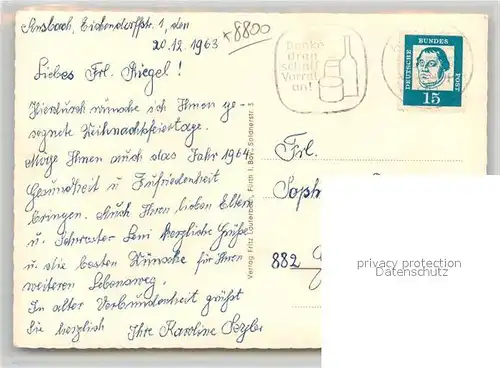 Ansbach, Eichendorffstr. 1, den
20.12.1963
*8800
Liebes Frl. Riegel!
Hierdurch wünsche ich Ihnen ge-
segnete Weihnachtsfeiertage.
Möge Ihnen auch das Jahr 1964
Gesundheit u Zufriedenheit
bringen. Auch Ihren lieben Eltern
u. Schwester Leni herzliche Grüße
u. die besten Wünsche für Ihren
weiteren Lebensweg.
In alter Verbundenheit grüßt
Sie herzlich Ihre Karoline
Verlag Fritz Lauterbach, Fürth i. Bay., Soldnerstr. 3
Denke
dran
schaff
Vorrat
an!
DEUTSCHE BUNDES POST
15
Frl.
Soph
882
privacy protection
Datenschutz